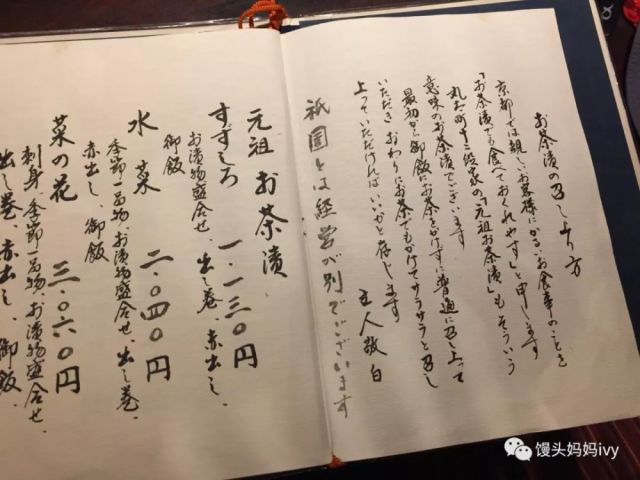 お茶漬の召し上り方
京都では親しいお客様にかるいお食事のことを
「お茶漬でも食べておくれやす」と申します
丸太町十二段家の「元祖お茶漬」もそういう
意味のお茶漬でございます
最初から御飯にお茶をかけずに普通に召し上って
いただき おわりにお茶でもかけてサラサラと召し
上っていただければいかがと存じます
主人敬白
祇園とは経営が別でございます
元祖 お茶漬
すずしろ 一.一三〇円
お漬物盛合せ、出し巻、赤出し、
御飯
水菜 二.〇四〇円
季節一品物、お漬物盛合せ、出し巻、
赤出し、御飯
菜の花 三.〇六〇円
刺身、季節一品物、お漬物盛合せ、
出し巻、赤出し、御飯、
馒头妈妈ivy